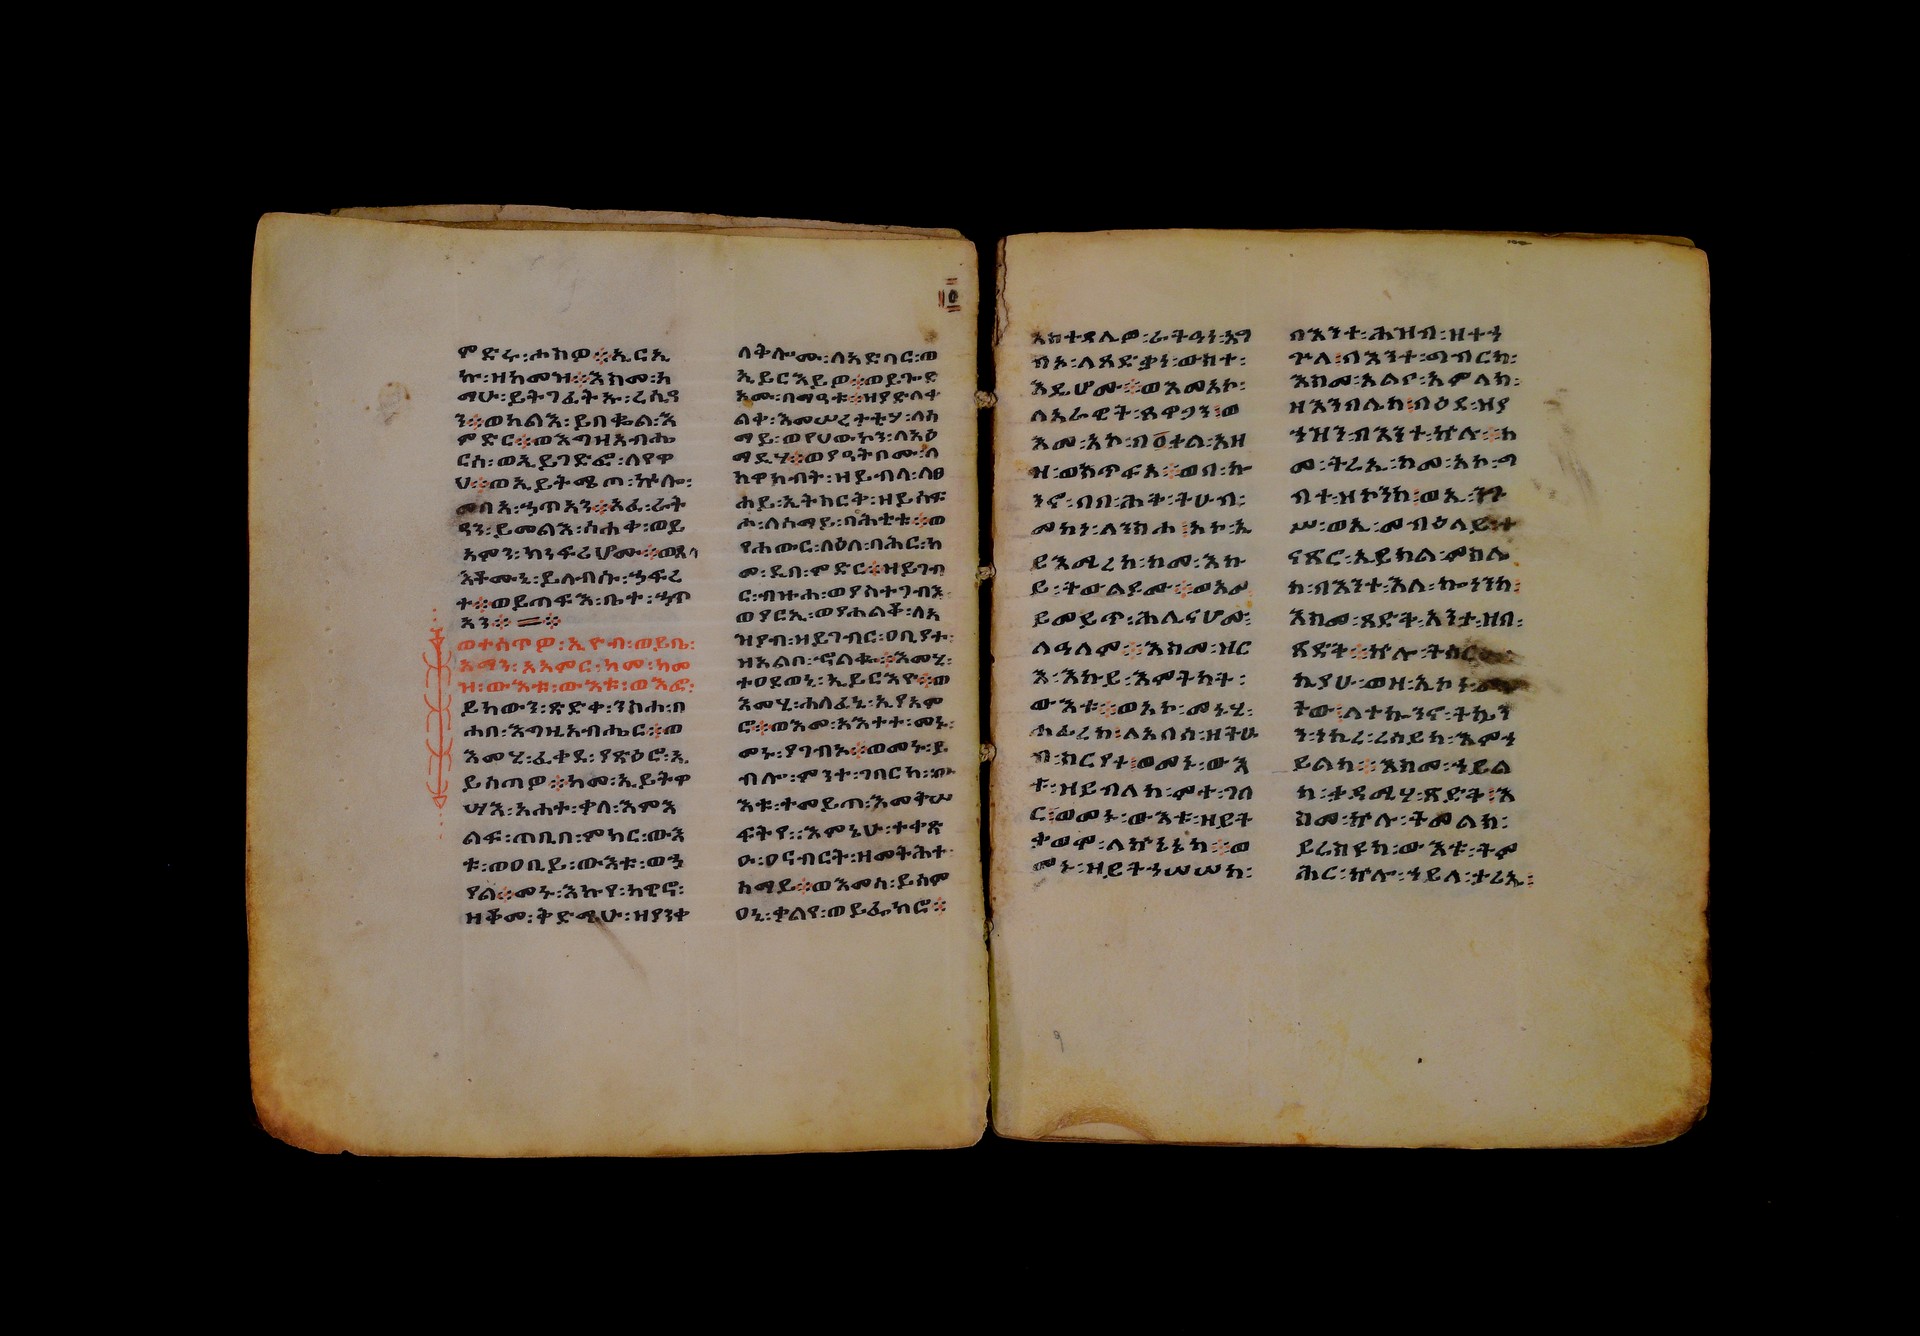 ምድሩ፡ሖከዎ፨ኢርኢ
ኩ፡ዘከመዝ፨እስመ፡ከ
ማሁ፡ይትገፈትኡ፡ረሲዓ
ን፨ወከልእ፡ይበቊል፡እ
ምድር፨ወእግዚአብሔ
ርሰ፡ወኢይገድፎ፡ለየዋ
ህ፨ወኢይትሜጦ፡ኵሎ፡
መባአ፡ኃጥአን፨አፈ፡ራት
ዓን፡ይመልእ፡ስሐቀ፡ወይ
አምን፡ከናፍሪሆሙ፨ወጸላ
እቶሙኒ፡ይለብሱ፡ኃፍረ
ተ፨ወይጠፍእ፡ቤተ፡ኃጥ
አን፨
ወተሰጥዎ፡ኢዮብ፡ወይቤ፡
እማን፡አአምር፡ከመ፡ከመ
ዝ፡ውእቱ፡ውእቱ፡ወእፎ፡
ይከውን፡ጽድቀ፡ንስሐ፡በ
ኀበ፡እግዚአብሔር፨ወ
እመሂ፡ፈቀደ፡የጽዕሮ፡ኢ
ይሰጠዎ፨ከመ፡ኢይትዋ
ሣእ፡አሐተ፡ቃለ፡እምእ
ልፍ፡ጠቢብ፡ምክር፡ውእ
ቱ፡ወዐቢይ፡ውእቱ፡ወኃ
የል፨መኑ፡እኩየ፡ከዊኖ፡
ዘቆመ፡ቅድሜሁ፡ዘያንቀ
ለትሎሙ፡ለአድባር፡ወ
ኢይርእይዎ፨ወይጐድ
አሙ፡በማዓቱ፨ዘያድለቀ
ልቃ፡እመሠረታቲሃ፡ለሰ
ማይ፡ወየሀውኩን፡ለአዕ
ማዲሃ፨ወያዓትቦሙ፡ለ
ከዋክብት፡ዘይብላ፡ለፀ
ሐይ፡ኢትክርቅ፡ዘይሰፍ
ሖ፡ለሰማይ፡በሕቲቱ፨ወ
የሐውር፡ላዕለ፡ባሕር፡ከ
መ፡ዲበ፡ምድር፨ዘይገብ
ር፡ብዙኀ፡ወያስተጋብእ፡
ወያርኢ፡ወያሐልቆ፡ለአ
ዝያብ፡ዘይገብር፡ዐቢያተ፡
ዘአልቦ፡ኆልቁ፨እመሂ፡
ተዐደወኒ፡ኢይርእዮ፨ወ
እመሂ፡ኀለፈኒ፡ኢየአም
ሮ፨ወእመ፡አእተተ፡መኑ፡
መኑ፡ያገብኦ፨ወመኑ፡ይ
ብሎ፡ምንተ፡ገበርከ፡ው
እቱ፡ተመይጠ፡እመቅሠ
ፍት፡፡እምኔሁ፡ተቀጽ
ዑ፡ዐናብርት፡ዘመትሕተ፡
ሰማይ፨ወእመሰ፡ይሰም
ዐኒ፡ቃልየ፡ወይፌክሮ፨
እስተደሉዎ፡ራትዓነ፡እግ
ብኦ፡ለጸድቃን፡ውስተ፡
እዴሆሙ፨ወእመአኮ፡
ለአራዊት፡ጸዋጋን፨ወ
እመ፡አኮ፡በዐቀል፡አዘ
ዝ፡ወአጥፍአ፨ወበ፡ኩ
ንኖ፡በበ፡ሕቅ፡ትሁብ፡
መካነ፡ለንስሐ፨አኮ፡ኢ
ይእማረከ፡ከመ፡እኩ
ይ፡ትውልዶሙ፨ወእም
ይመይጥ፡ሕሊናሆሙ፡
ለዓለም፨እስመ፡ዝር
እ፡እኩይ፡እምትካት፡
ውእቱ፨ወአኮ፡መኑሂ፡
ሐፊረከ፡ለአበሰ፡ዘትሁ
ብ፡ስርየተ፨ወመኑ፡ውእ
ቱ፡ዘይብለከ፡ምተ፡ገበ
ርከ፨ወመኑ፡ውእቱ፡ዘይት
ቃወሞ፡ለኵነኔከ፨ወ
መኑ፡ዘይትኃሠሠከ፡
በእንተ፡ሕዝብ፡ዘተኃ
ጕለ፨በእንተ፡ግብርከ፡
እስመ፡አልቦ፡አምላከ፡
ዘእንበሌከ፨በዕደ፡ዘያ
ኃዝን፡በእንተ፡ኵሉ፨ከ
መ፡ትረኢ፡ከመ፡አኮ፡ግ
ብተ፡ዝኮነንከ፨ወኢ፡ንጉ
ሥ፡ወኢ፡መብዕለይ፡ተ
ናጽር፡ኢይክል፡ምስሌ
ከ፡በእንተ፡እለ፡ኰነንከ፡
እስመ፡ጻድቅ፡አንተ፡ዘበ፡
ጽድቅ፨ኵሎ፡ትሰር
ኪያሁ፡ወዘ፡ኢኮነ፡
ትው፡ለተኰንኖ፡ትኤን
ን፡ነኪረ፡ረሰይከ፡እምኃ
ይልከ፨እስመ፡ኃይል
ከ፡ቀዳሚሃ፡ጽድቅ፨እ
ስመ፡ኵሎ፡ትመልክ፡
ይሬስየከ፡ውእቱ፡ትም
ሕር፡ኵሎ፡ኃይለ፡ታሪኢ፡